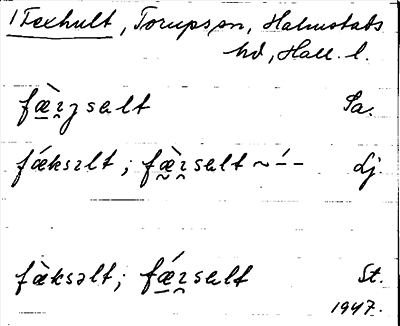 1 Fexhult, Torups sn, Halmstads
hd, Hall. l.
fæ̀rʒsəlt Sa.
fǽksəlt; fæ̀rsəlt ~ ´ – Lj.
fæ̀ksəlt; fǽrsəlt St.
1947.